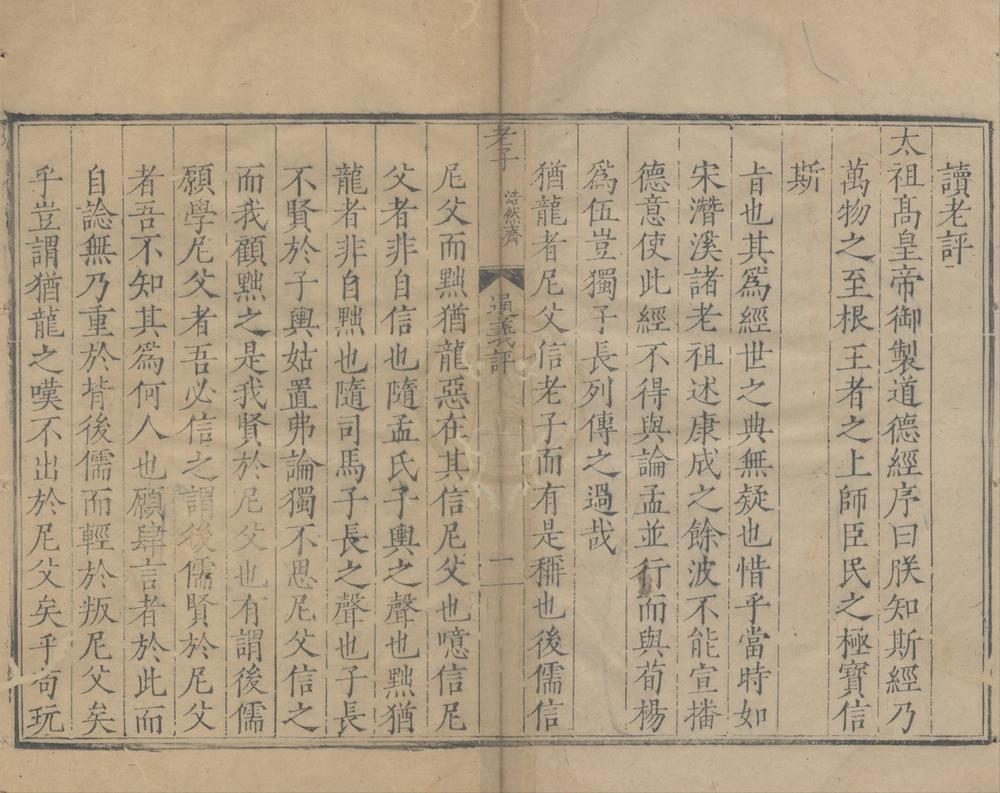 讀老評
太祖髙皇帝御製道德經序曰朕知斯經乃
萬物之至根王者之上師臣民之極寳信
斯
㫖也其爲經世之典無疑也惜乎當時如
宋濳溪諸老祖述康成之餘波不能宣播
德意使此經不得與論孟並行而與荀楊
爲伍豈獨子長列傳之過哉
猶龍者尼父信老子而有是稱也後儒信
老子 浩然齋 通義評 一
尼父而黜猶龍惡在其信尼父也噫信尼
父者非自信也隨孟氏子輿之聲也黜猶
龍者非自黜也隨司馬子長之聲也子長
不賢於子輿姑置弗論獨不思尼父信之
而我顧黜之是我賢於尼父也有謂後儒
願學尼父者吾必信之謂後儒賢於尼父
者吾不知其爲何人也願肆言者於此而
自諗無乃重於背後儒而輕於叛尼父矣
乎豈謂猶龍之嘆不出於尼父矣乎苟玩